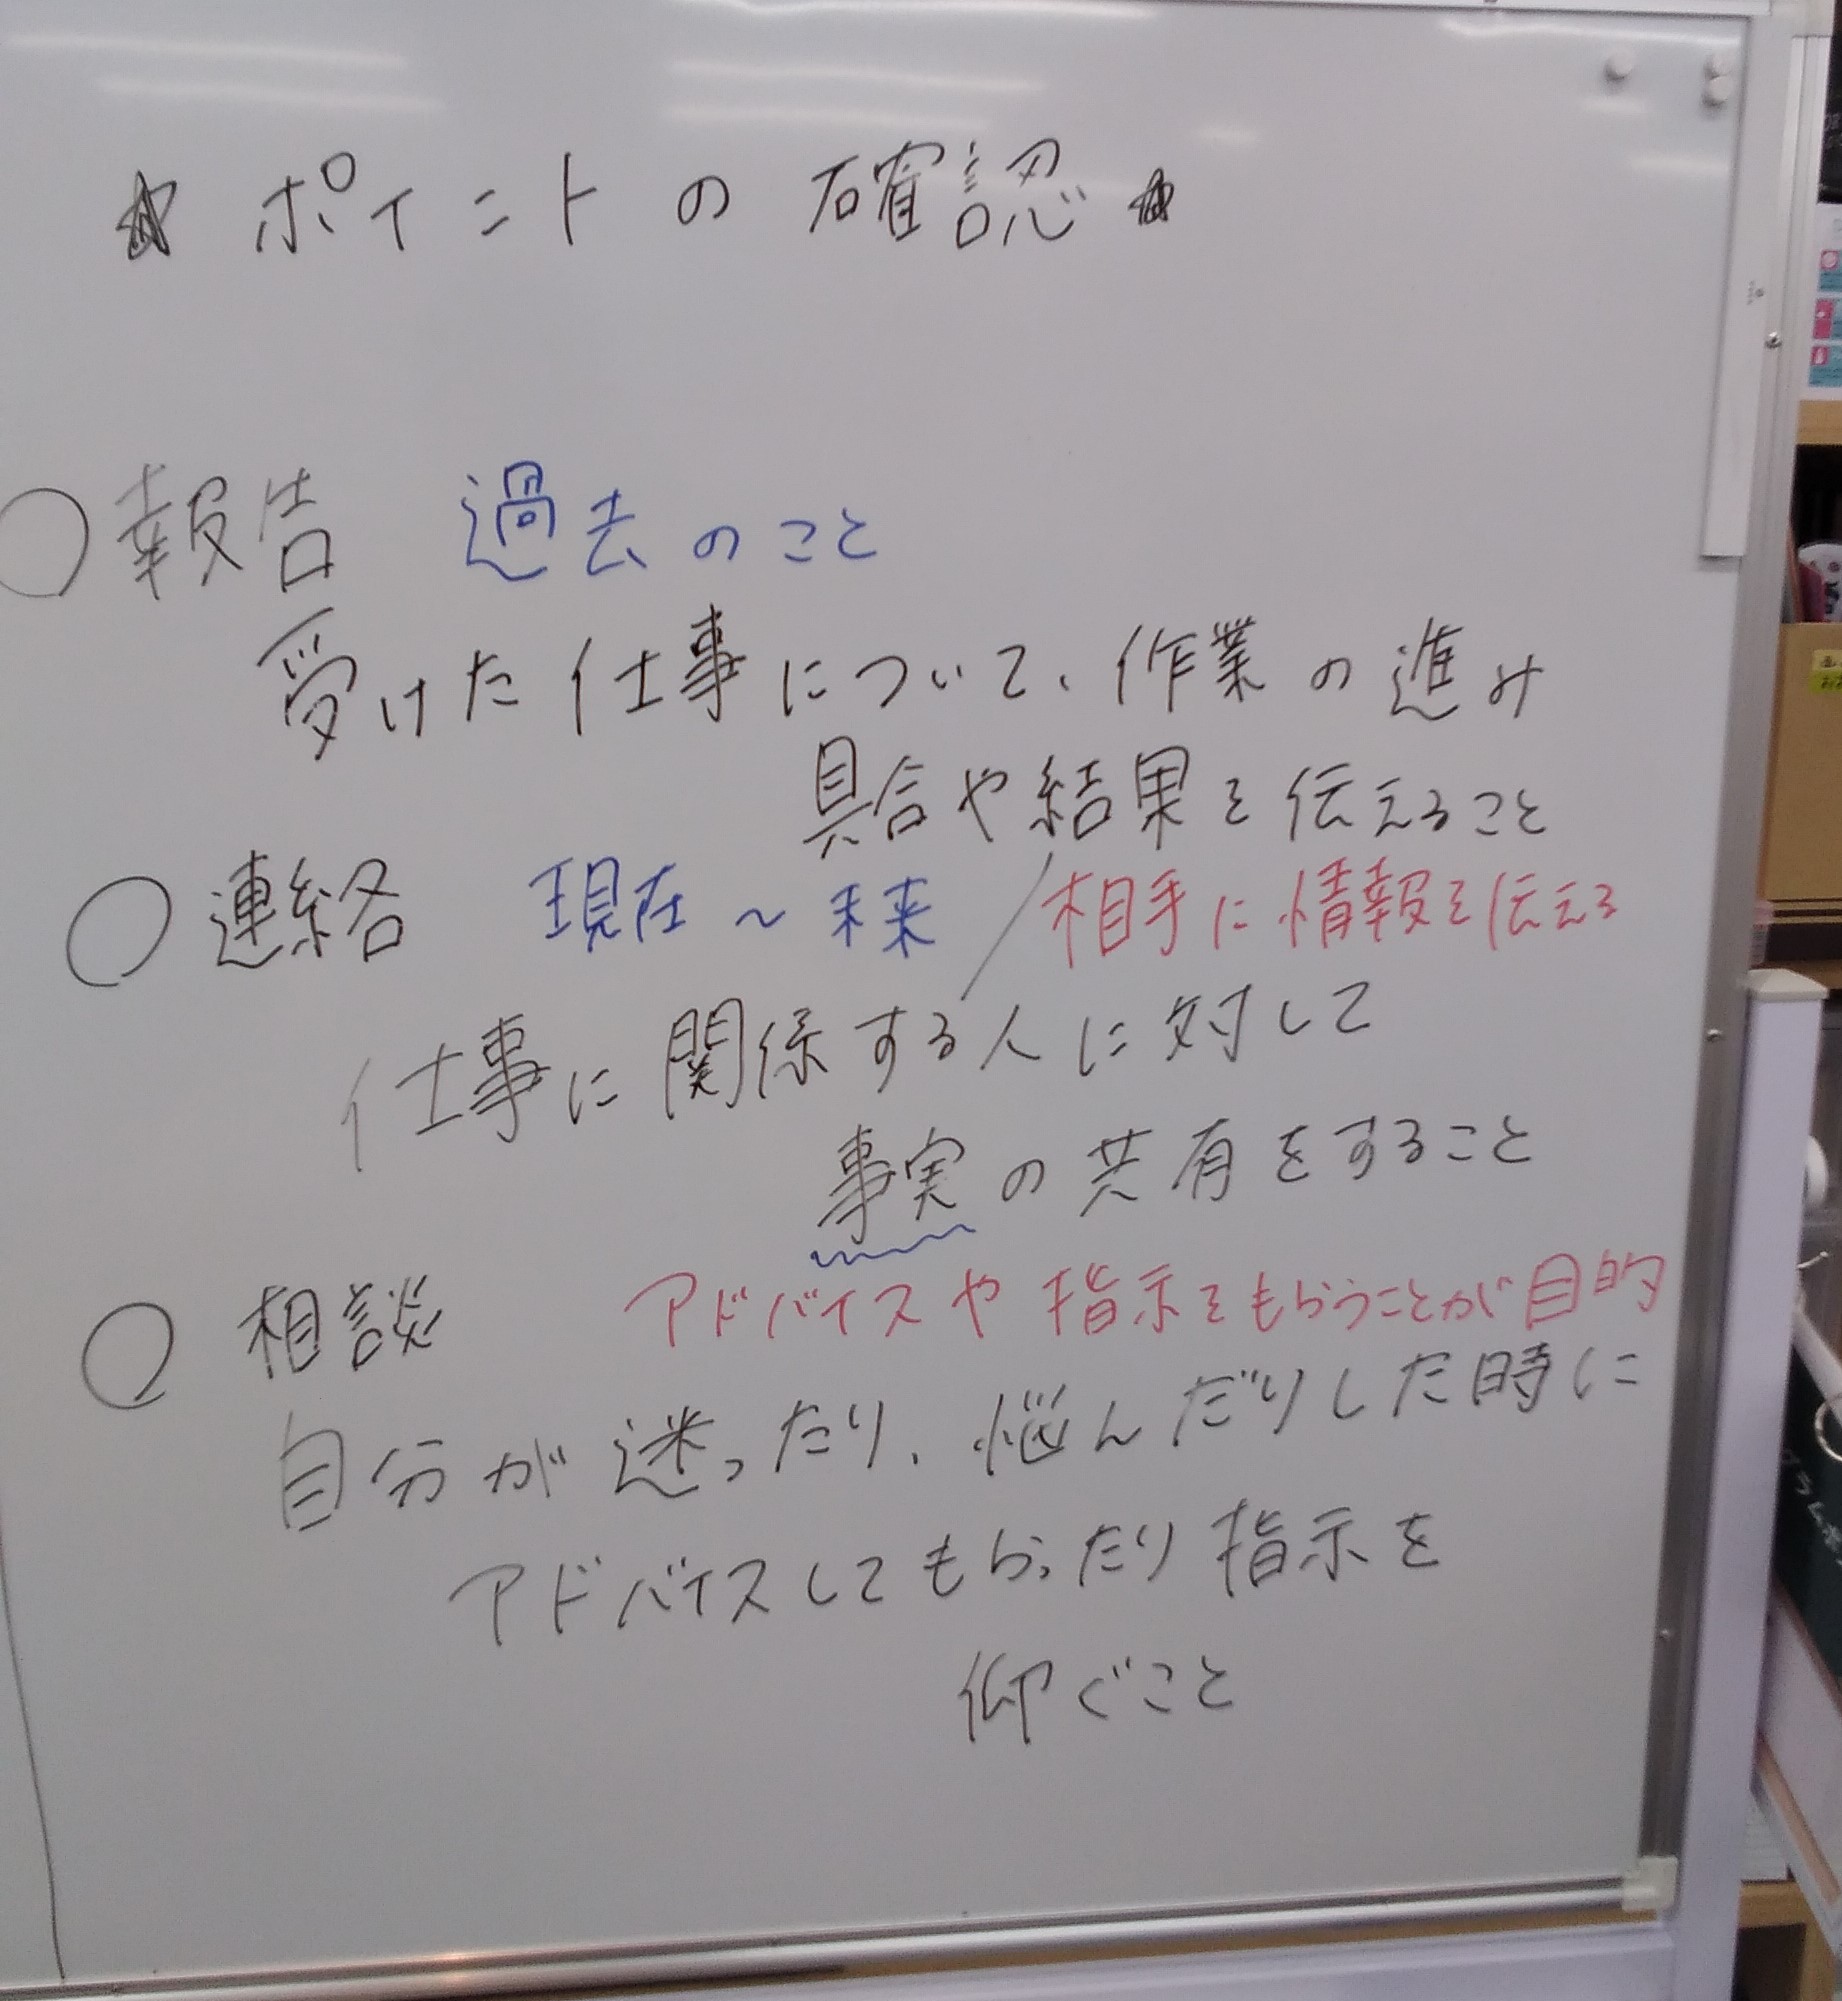 ☆ ポイントの確認 ☆
○報告 過去のこと
受けた仕事について、作業の進み
具合や結果を伝えること
○連絡 現在〜未来/相手に情報を伝える
仕事に関係する人に対して
事実の共有をすること
○相談 アドバイスや指示をもらうことが目的
自分が迷ったり、悩んだりした時に
アドバイスしてもらったり指示を
仰ぐこと